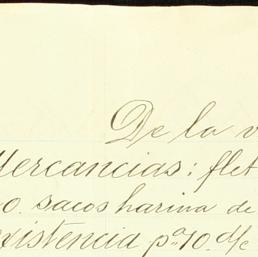 De la v
Mercancias; flet
o. sacos harina de
existencia pª 10. d/c